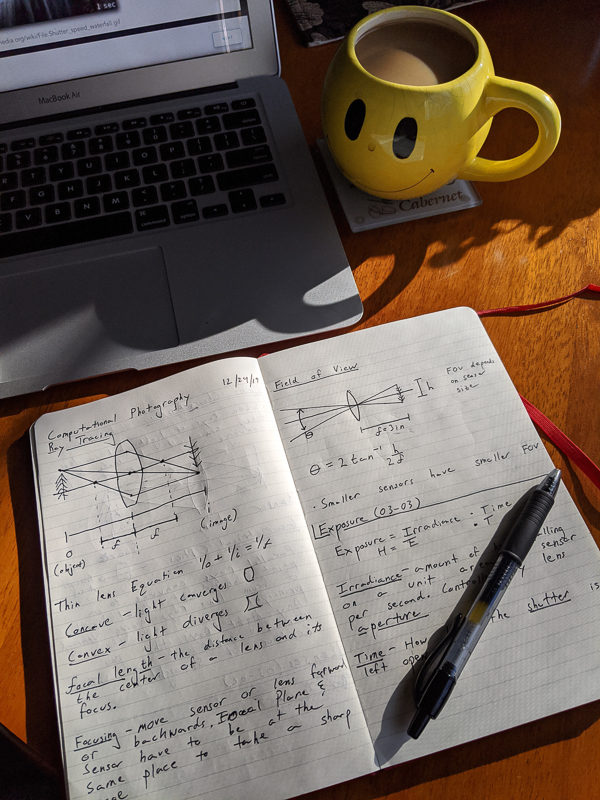 1 sec
media.org/wiki/File:Shutter_speed_waterfall.gif
MacBook Air
Cabernet
Computational Photography
12/24/19
Ray Tracing
(image)
f
f
1
O
(object)
Thin lens Equation 1/o + 1/i = 1/f
Concave - light converges
Convex - light diverges
focal length - the distance between
the center of a lens and its
focus.
Focusing - move sensor or lens forward
or backwards. Focal Plane &
sensor have to be at the
same place to take a sharp
Field of View
θ
h
FOV depends
on sensor
size
θ = 2 tan⁻¹ h/2f
· Smaller sensors have smaller FOV
Exposure (03-03)
Exposure = Irradiance · Time
H = E · T
Irradiance - amount of falling
on a unit area sensor
per second. lens
aperture
Time - How the shutter is
left open